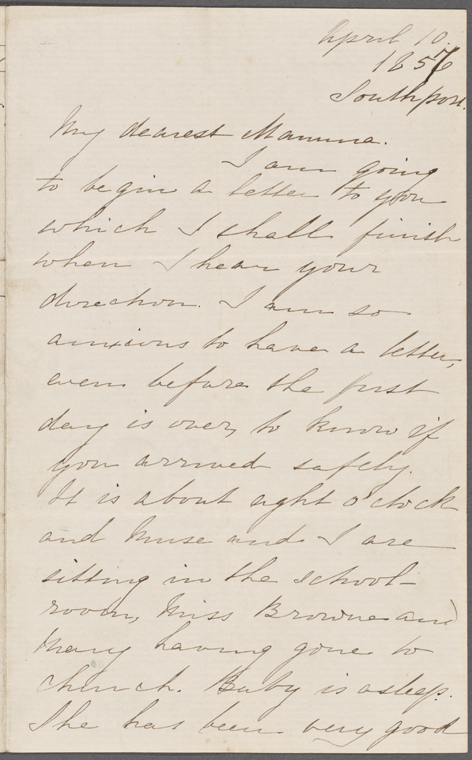 April 10.
1857
Southport.
My dearest Mamma.
I am going
to begin a letter to you
which I shall finish
when I hear your
direction. I am so
anxious to have a letter,
even before the first
day is over, to know if
you arrived safely.
It is about eight o'clock
and Muse and I are
sitting in the school-
room, Miss Browne and
Mary having gone to
church. Baby is asleep.
She has been very good